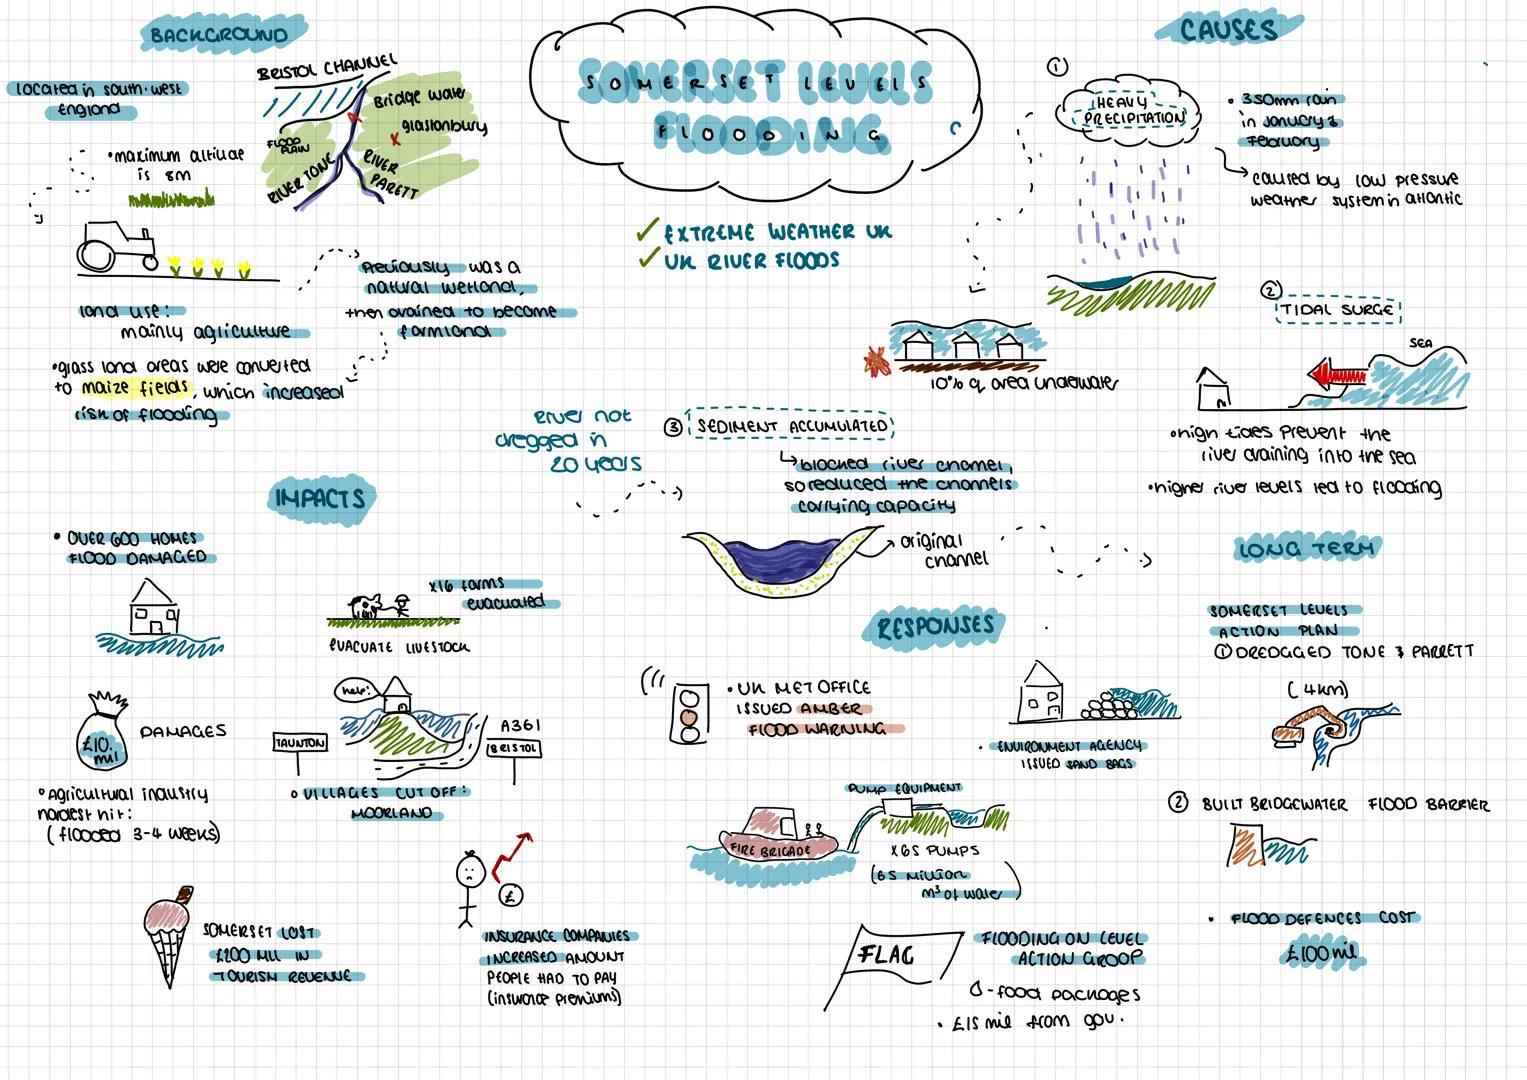 SOMERSET LEVELS
FLOODING
✓ EXTREME WEATHER UK
✓ UK RIVER FLOODS
BACKGROUND
located in south-west
England
BRISTOL CHANNEL
Bridge water
glastonbury
FLOOD
PLAIN
RIVER TONE
RIVER
PARETT
•maximum altitude
is 8m
land use:
mainly agriculture
Previously was a
natural wetland,
then drained to become
farmland
•grass land areas were converted
to maize fields, which increased
risk of flooding
CAUSES
①
HEAVY
PRECIPITATION
• 350mm rain
in January &
February
caused by low pressure
weather system in atlantic
10% of area underwater
②
TIDAL SURGE
SEA
•high tides prevent the
river draining into the sea
•higher river levels led to flooding
river not
dregged in
20 years
③ SEDIMENT ACCUMULATED
↳ blocked river channel,
so reduced the channels
carrying capacity
original
channel
IMPACTS
• OVER 600 HOMES
FLOOD DAMAGED
x16 farms
evacuated
EVACUATE LIVESTOCK
£10.
mil
DAMAGES
•Agricultural industry
hardest hit:
(flooded 3-4 weeks)
help!
TAUNTON
A361
BRISTOL
• VILLAGES CUT OFF:
MOORLAND
SOMERSET LOST
£200 MIL IN
TOURISM REVENUE
£
INSURANCE COMPANIES
INCREASED AMOUNT
PEOPLE HAD TO PAY
(insurance premiums)
RESPONSES
• UK MET OFFICE
ISSUED AMBER
FLOOD WARNING
• ENVIRONMENT AGENCY
ISSUED SAND BAGS
PUMP EQUIPMENT
FIRE BRIGADE
X65 PUMPS
(65 MILLION
m³ of water)
FLAG
FLOODING ON LEVEL
ACTION GROOP
-food packages
• £15 mil from gov.
LONG TERM
SOMERSET LEVELS
ACTION PLAN
① DREDGGED TONE & PARRETT
(4km)
② BUILT BRIDGEWATER FLOOD BARRIER
• FLOOD DEFENCES COST
£100 mil